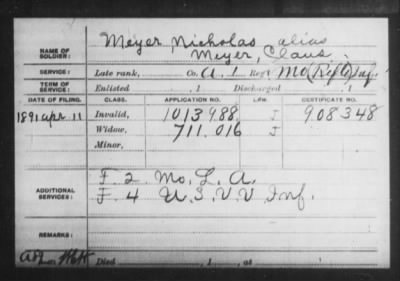 Meyer Nicholas alias
NAME OF SOLDIER: Meyer, Claus.
SERVICE: Late rank, Co. A, 1 Reg't Mo (Rifle) Inf.
TERM OF SERVICE: Enlisted , 1 Discharged , 1
DATE OF FILING. CLASS. APPLICATION NO. LAW. CERTIFICATE NO.
1891 Apr 11 Invalid, 1013988 J 908348
Widow, 711.016 J
Minor,
ADDITIONAL SERVICES: F. 2. Mo. L. A.
F. 4 U. S. V. V Inf.
REMARKS:
Died , 1 , at